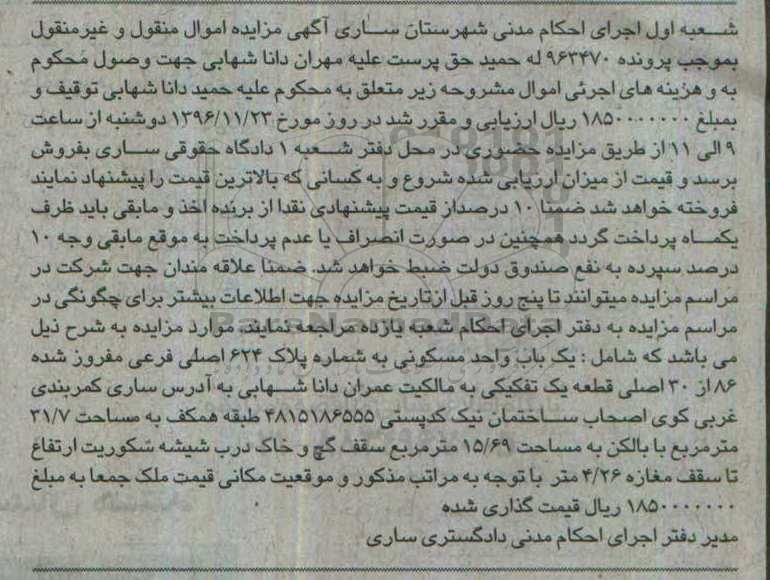 شعبه اول اجرای احکام مدنی شهرستان ساری آگهی مزایده اموال منقول و غیرمنقول
بموجب پرونده ۹۶۳۴۷۰ له حمید حق پرست علیه مهران دانا شهابی جهت وصول محکوم
به و هزینه های اجرئی اموال مشروحه زیر متعلق به محکوم علیه حمید دانا شهابی توقیف و
بمبلغ ۱۸۵۰۰۰۰۰۰۰ ریال ارزیابی و مقرر شد در روز مورخ ۱۳۹۶/۱۱/۲۳ دوشنبه از ساعت
۹ الی ۱۱ از طریق مزایده حضوری در محل دفتر شعبه ۱ دادگاه حقوقی ساری بفروش
برسد و قیمت از میزان ارزیابی شده شروع و به کسانی که بالاترین قیمت را پیشنهاد نمایند
فروخته خواهد شد ضمنا ۱۰ درصداز قیمت پیشنهادی نقدا از برنده اخذ و مابقی باید ظرف
یکماه پرداخت گردد همچنین در صورت انصراف یا عدم پرداخت به موقع مابقی وجه ۱۰
درصد سپرده به نفع صندوق دولت ضبط خواهد شد. ضمنا علاقه مندان جهت شرکت در
مراسم مزایده میتوانند تا پنج روز قبل ازتاریخ مزایده جهت اطلاعات بیشتر برای چگونگی در
مراسم مزایده به دفتر اجرای احکام شعبه یازده مراجعه نمایند. موارد مزایده به شرح ذیل
می باشد که شامل : یک باب واحد مسکونی به شماره پلاک ۶۲۴ اصلی فرعی مفروز شده
۸۶ از ۳۰ اصلی قطعه یک تفکیکی به مالکیت عمران دانا شهابی به آدرس ساری کمربندی
غربی کوی اصحاب ساختمان نیک کدپستی ۴۸۱۵۱۸۶۵۵۵ طبقه همکف به مساحت ۳۱/۷
مترمربع با بالکن به مساحت ۱۵/۶۹ مترمربع سقف گچ و خاک درب شیشه سکوریت ارتفاع
تا سقف مغازه ۴/۲۶ متر با توجه به مراتب مذکور و موقعیت مکانی قیمت ملک جمعا به مبلغ
۱۸۵۰۰۰۰۰۰۰ ریال قیمت گذاری شده
مدیر دفتر اجرای احکام مدنی دادگستری ساری
ParsNamadData